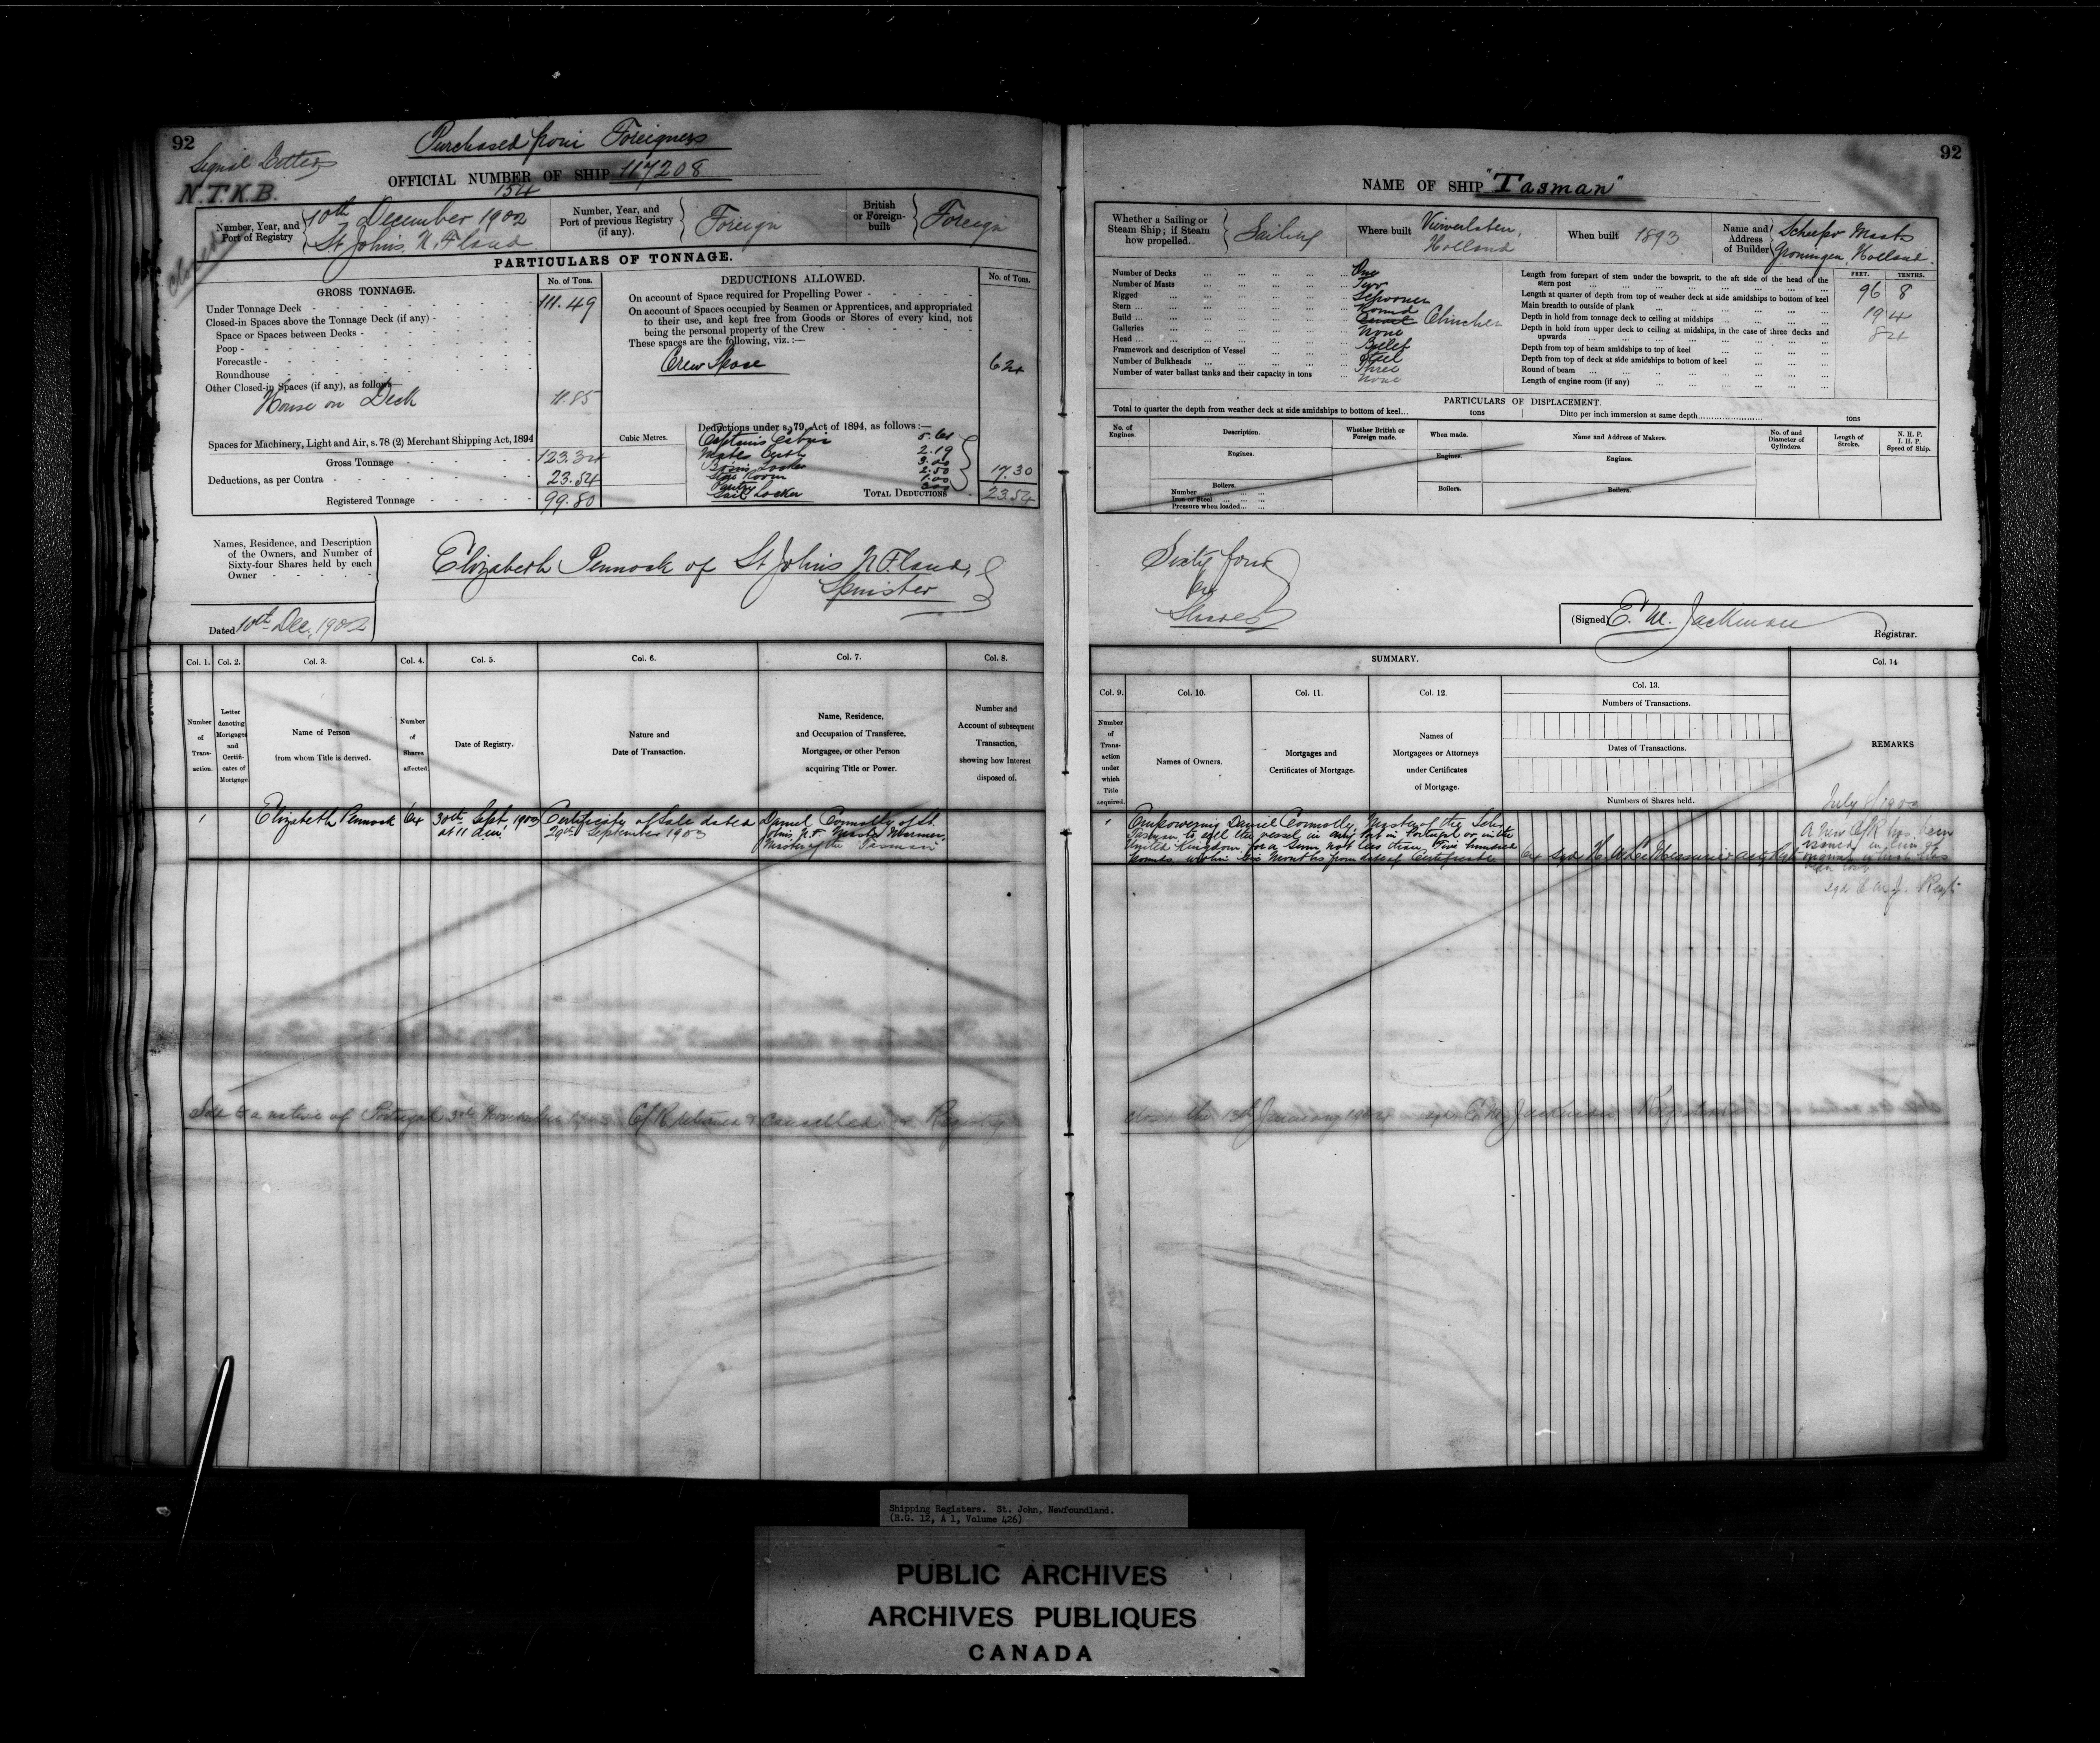 92
Purchased from Foreigners
Signal Letters
N.T.K.B.
OFFICIAL NUMBER OF SHIP 117208
154
Number, Year, and Port of Registry
10th December 1902
St Johns, N. F land
Number, Year, and Port of previous Registry (if any).
Foreign
British or Foreign-built
Foreign
PARTICULARS OF TONNAGE.
GROSS TONNAGE.
No. of Tons.
Under Tonnage Deck 111.49
Closed-in Spaces above the Tonnage Deck (if any)
Space or Spaces between Decks
Poop
Forecastle
Roundhouse
Other Closed-in Spaces (if any), as follows
House on Deck 11.85
Spaces for Machinery, Light and Air, s. 78 (2) Merchant Shipping Act, 1894
Gross Tonnage 123.34
Deductions, as per Contra 23.54
Registered Tonnage 99.80
DEDUCTIONS ALLOWED.
No. of Tons.
On account of Space required for Propelling Power
On account of Spaces occupied by Seamen or Apprentices, and appropriated
to their use, and kept free from Goods or Stores of every kind, not
being the personal property of the Crew
These spaces are the following, viz. :—
Crew Space 6 24
Cubic Metres.
Deductions under s. 79, Act of 1894, as follows :—
Captains Cabin 5.61
Mates Berth 2.19
Bosns Locker 3.00
Room 2.50
Pantry 1.00
Sail Locker
17.30
TOTAL DEDUCTIONS 23.54
Names, Residence, and Description
of the Owners, and Number of
Sixty-four Shares held by each
Owner
Elizabeth Pennock of St Johns N F land,
Spinster
Dated 10th Dec. 1902
Col. 1.
Col. 2.
Col. 3.
Col. 4.
Col. 5.
Col. 6.
Col. 7.
Col. 8.
Number of Trans-action.
Letter denoting Mortgages and Certifi-cates of Mortgage
Name of Person
from whom Title is derived.
Number of Shares affected.
Date of Registry.
Nature and
Date of Transaction.
Name, Residence,
and Occupation of Transferee,
Mortgagee, or other Person
acquiring Title or Power.
Number and
Account of subsequent
Transaction,
showing how Interest
disposed of.
1
Elizabeth Pennock
64
30th Sept 1903
at 11 a.m.
Certificate of Sale dated
29th September 1903
Daniel Connolly of St.
Johns N.F. Master Mariner,
Master of the "Tasman"
Sold to a native of Portugal November 1903 C of R returned & cancelled Registry
92
NAME OF SHIP "Tasman"
Whether a Sailing or Steam Ship; if Steam how propelled.
Sailing
Where built
Holland
When built 1893
Name and Address of Builder
Groningen, Holland.
Number of Decks One
Number of Masts Two
Rigged Schooner
Stern Round
Build Clincher
Galleries None
Head Billet
Framework and description of Vessel Steel
Number of Bulkheads Three
Number of water ballast tanks and their capacity in tons None
FEET. TENTHS.
Length from forepart of stem under the bowsprit, to the aft side of the head of the
stern post 96 8
Length at quarter of depth from top of weather deck at side amidships to bottom of keel
Main breadth to outside of plank 19 4
Depth in hold from tonnage deck to ceiling at midships 8 4
Depth in hold from upper deck to ceiling at midships, in the case of three decks and
upwards
Depth from top of beam amidships to top of keel
Depth from top of deck at side amidships to bottom of keel
Round of beam
Length of engine room (if any)
PARTICULARS OF DISPLACEMENT.
Total to quarter the depth from weather deck at side amidships to bottom of keel... tons
Ditto per inch immersion at same depth tons
No. of Engines.
Description.
Whether British or Foreign made.
When made.
Name and Address of Makers.
No. of and Diameter of Cylinders.
Length of Stroke.
N. H. P.
I. H. P.
Speed of Ship.
Engines.
Engines.
Engines.
Boilers.
Number
Iron or Steel
Pressure when loaded
Boilers.
Boilers.
Sixty four
64
Shares
(Signed) E. M. Jackman
Registrar.
SUMMARY.
Col. 9.
Col. 10.
Col. 11.
Col. 12.
Col. 13.
Col. 14
Number of Trans-action under which Title acquired.
Names of Owners.
Mortgages and
Certificates of Mortgage.
Names of
Mortgagees or Attorneys
under Certificates
of Mortgage.
Numbers of Transactions.
Dates of Transactions.
Numbers of Shares held.
REMARKS
July 8/190
Empowering Daniel Connolly, Master of the Schr.
Tasman to sell the vessel in any Port in Portugal or in the
United Kingdom, for a Sum not less than Five hundred
pounds within Six Months from date of Certificate
64 sgd H. W. LeMessurier
A new C of R has been
issued in lieu of
original which has
been lost
sgd E M J. Regr
close the 13th January 1904 sgd E M Jackman Registrar
Shipping Registers. St. John, Newfoundland.
(R.G. 12, A 1, Volume 426)
PUBLIC ARCHIVES
ARCHIVES PUBLIQUES
CANADA